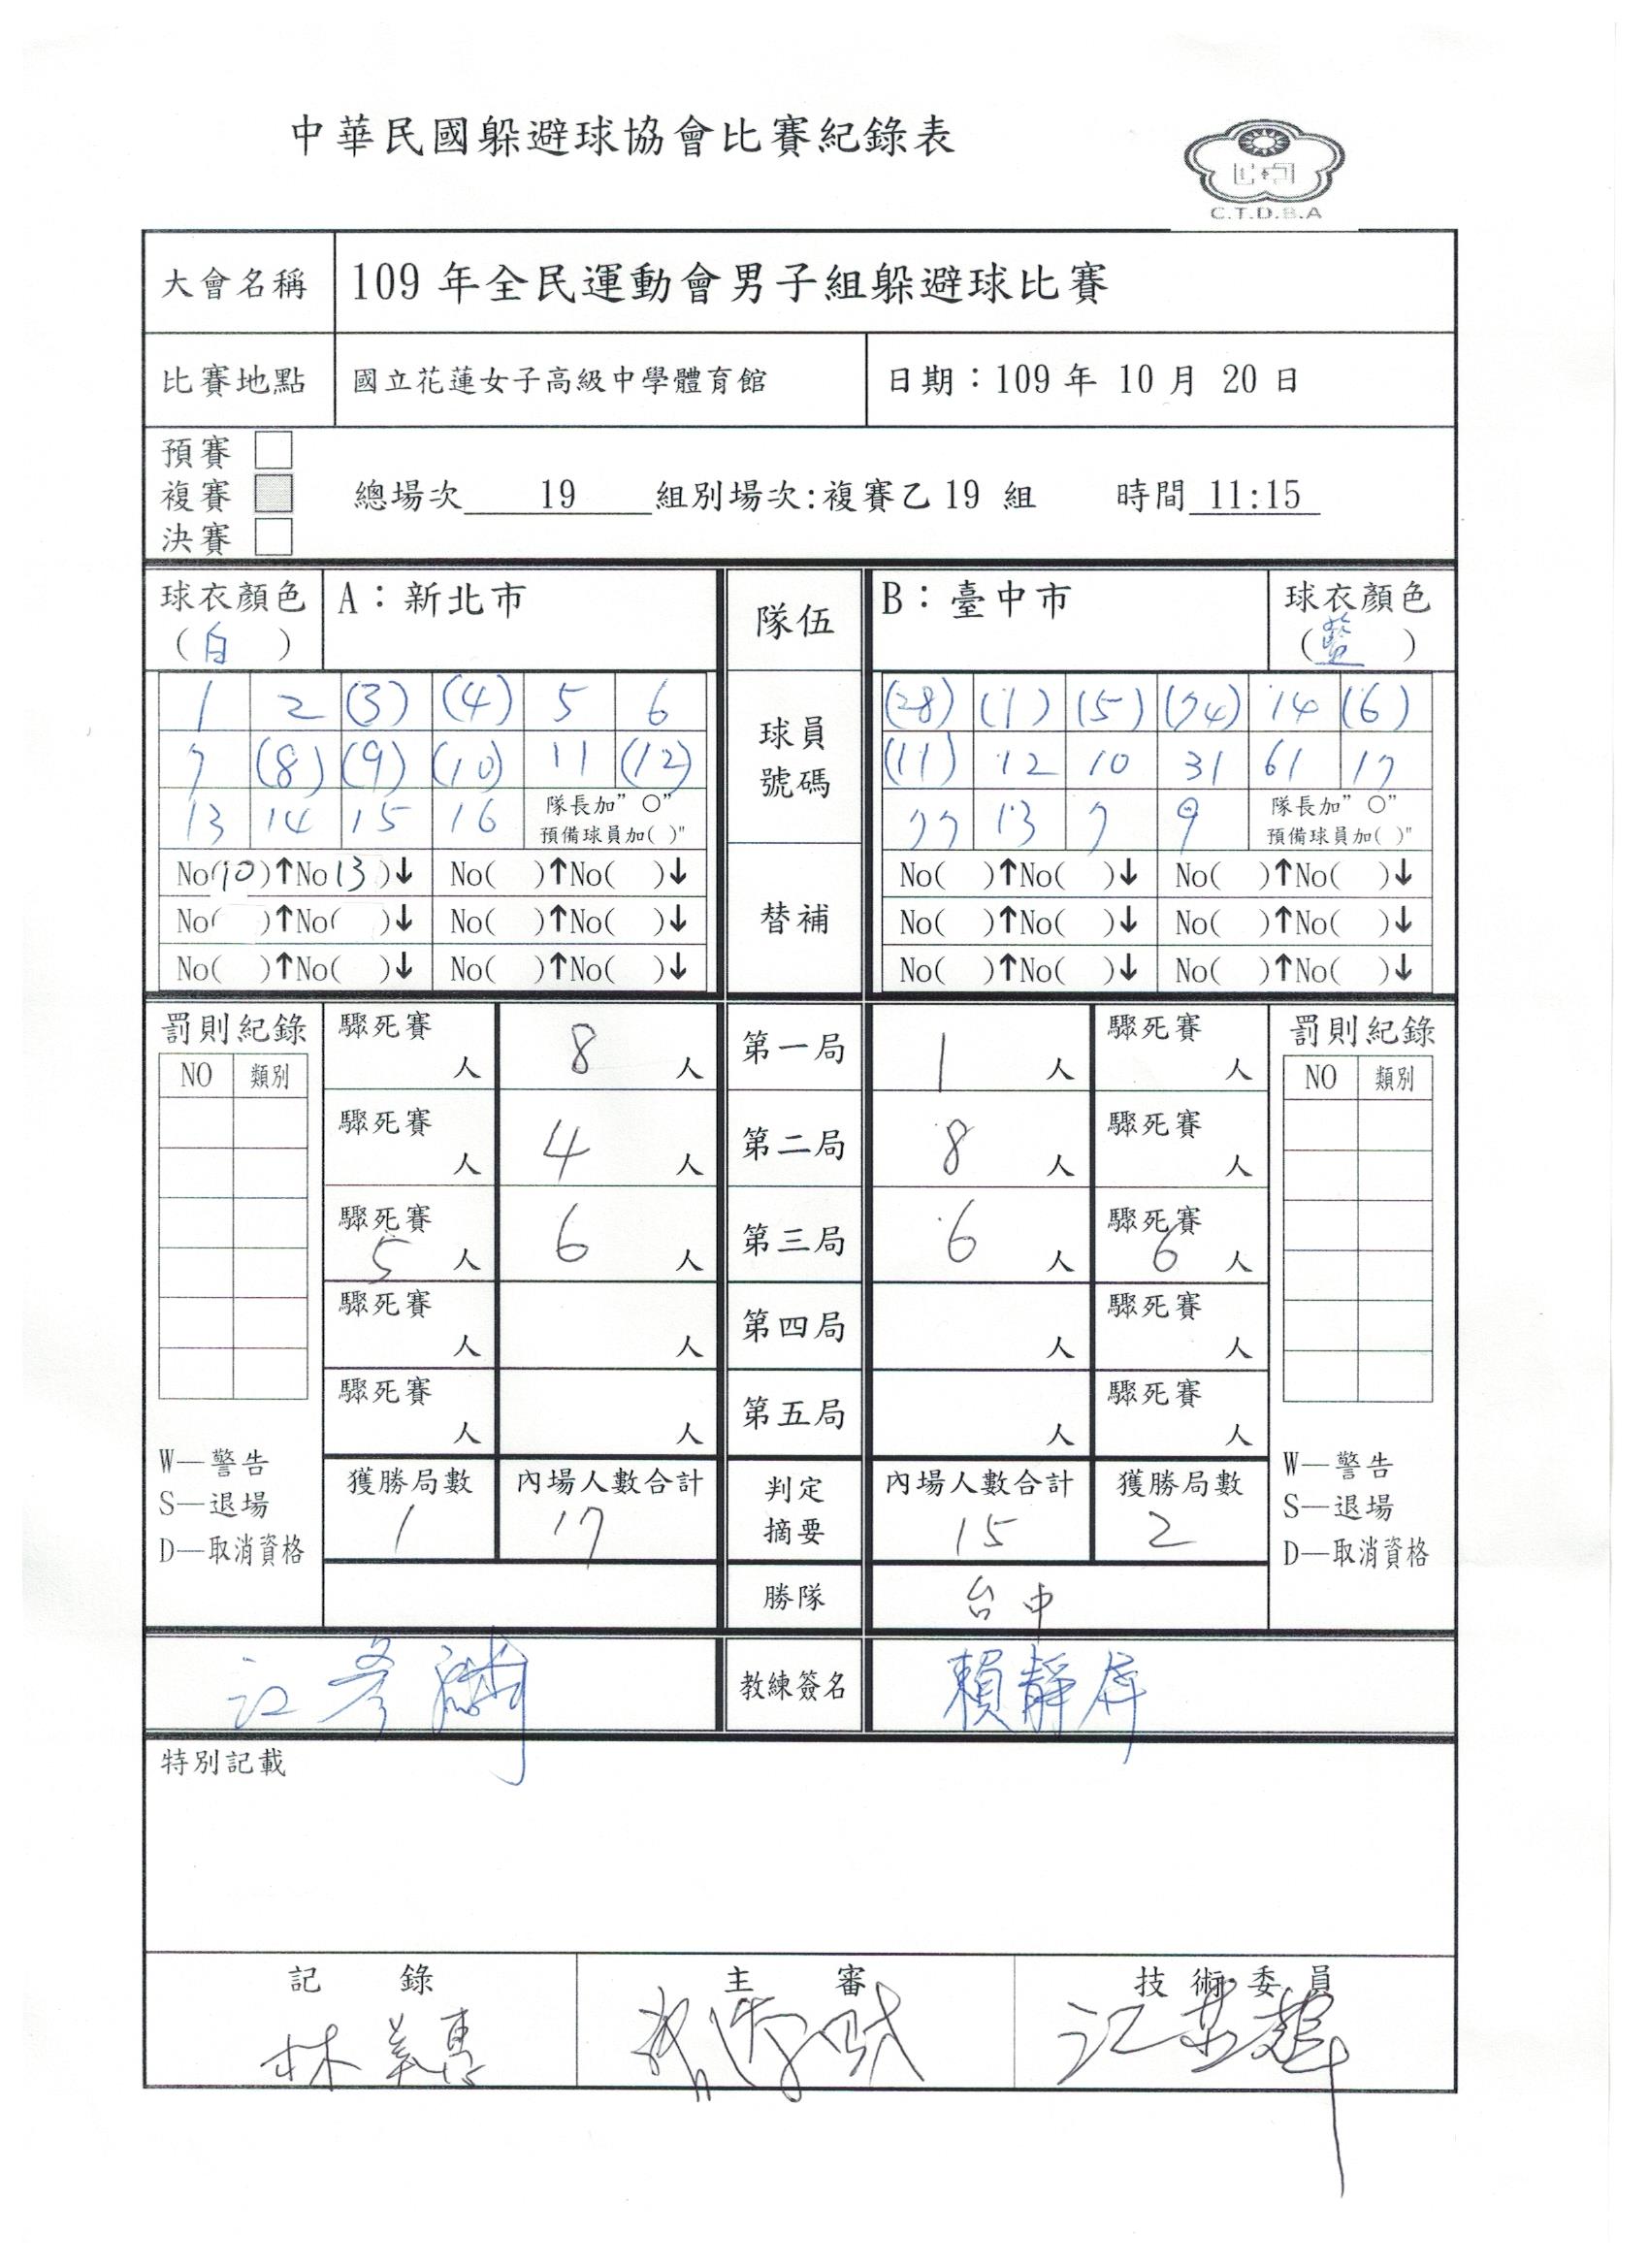 中華民國躲避球協會比賽紀錄表
C.T.D.B.A
大會名稱 109 年全民運動會男子組躲避球比賽
比賽地點 國立花蓮女子高級中學體育館 日期：109 年 10 月 20 日
預賽
複賽 總場次 19 組別場次:複賽乙 19 組 時間 11:15
決賽
球衣顏色 A：新北市 隊伍 B：臺中市 球衣顏色
(白) (藍)
1 2 (3) (4) 5 6 球員 (28) (1) (5) (74) 14 (6)
7 (8) (9) (10) 11 (12) 號碼 (11) 12 10 31 61 17
13 14 15 16 隊長加"○" 77 13 7 9 隊長加"○"
預備球員加( )" 預備球員加( )"
No(10)↑No 13 )↓ No( )↑No( )↓ No( )↑No( )↓ No( )↑No( )↓
No( )↑No( )↓ No( )↑No( )↓ 替補 No( )↑No( )↓ No( )↑No( )↓
No( )↑No( )↓ No( )↑No( )↓ No( )↑No( )↓ No( )↑No( )↓
罰則紀錄 驟死賽 人 8 人 第一局 1 人 驟死賽 人 罰則紀錄
NO 類別 NO 類別
驟死賽 人 4 人 第二局 8 人 驟死賽 人
驟死賽 5 人 6 人 第三局 6 人 驟死賽 6 人
驟死賽 人 人 第四局 人 驟死賽 人
驟死賽 人 人 第五局 人 驟死賽 人
W—警告 獲勝局數 內場人數合計 判定 內場人數合計 獲勝局數 W—警告
S—退場 1 17 摘要 15 2 S—退場
D—取消資格 D—取消資格
勝隊 台中
江彥麟 教練簽名 賴靜屏
特別記載
記 錄 主 審 技術委員
林 江